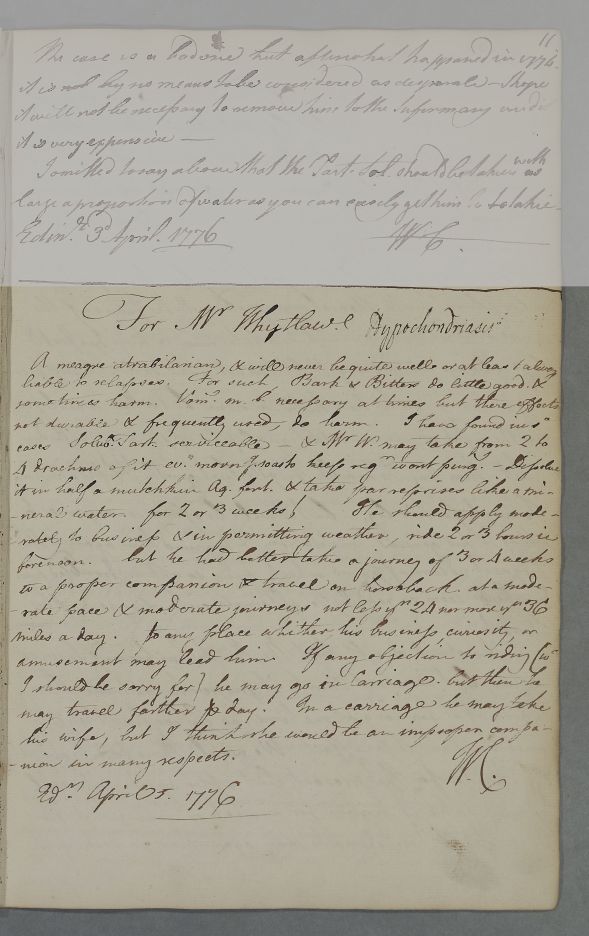 11
The case is a bad one but after what happened in 1776
it is not by no means to be considered as desperate – I hope
it will not be necessary to remove him to the Infirmary
it is very expensive —
I omitted to say above that the Tart. Sol. should be taken with as
large a proportion of water as you can easily get him to take.
Edinr. 3d April. 1776 WC.
For Mr Whytlaw. Hypochondriasis
A meagre atrabilarian, & will never be quite well or at least alway
liable to relapses. For such Bark & Bitters do little good. &
sometimes harm. Vomts. m. b necessary at times but there effects
not durable & frequently used, do harm. I have found in sc
cases Solub. Tart. serviceable – & Mr W. may take from 2 to
4 drachms of it evy morng. so as to keep regr. wont purg. – Dissolve
it in half a mutchkin Aq. font. & take par reprises like a mi-
-neral water for 2 or 3 weeks. He should apply mode-
-rately to business & in permitting weather, ride 2 or 3 hours in
forenoon. but he had better take a journey of 3 or 4 weeks
wt a proper companion & travel on horseback at a mode-
-rate pace & moderate journeys not less yn 24 nor more yn 36
miles a day. to any place whither his business curiosity or
amusement may lead him If any objection to riding (wc
I should be sorry for) he may go in Carriage. but then he
may travel farther p day. In a carriage he may take
his wife, but I think she would be an improper compa-
-nion in many respects. WC.
Edr. April 5. 1776